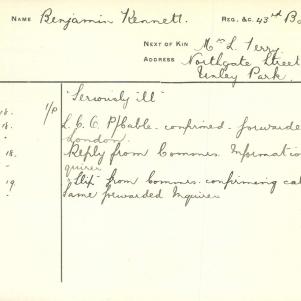 NAME Benjamin Kennett. REG. &C. 43rd Ba
NEXT OF KIN Mrs L. Terry
ADDRESS Northgate Street
Unley Park.
"Seriously ill"
18. 1/P
L.C.C. P/Cable confirmed. forwarde
London.
18. Reply from Commrs. Informatio
quirer
19. Slip from Commrs. confirming ca
" same forwarded Inquirer